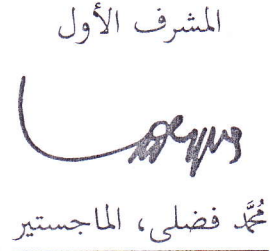 المشرف الأول
محمّد فضلى، الماجستير